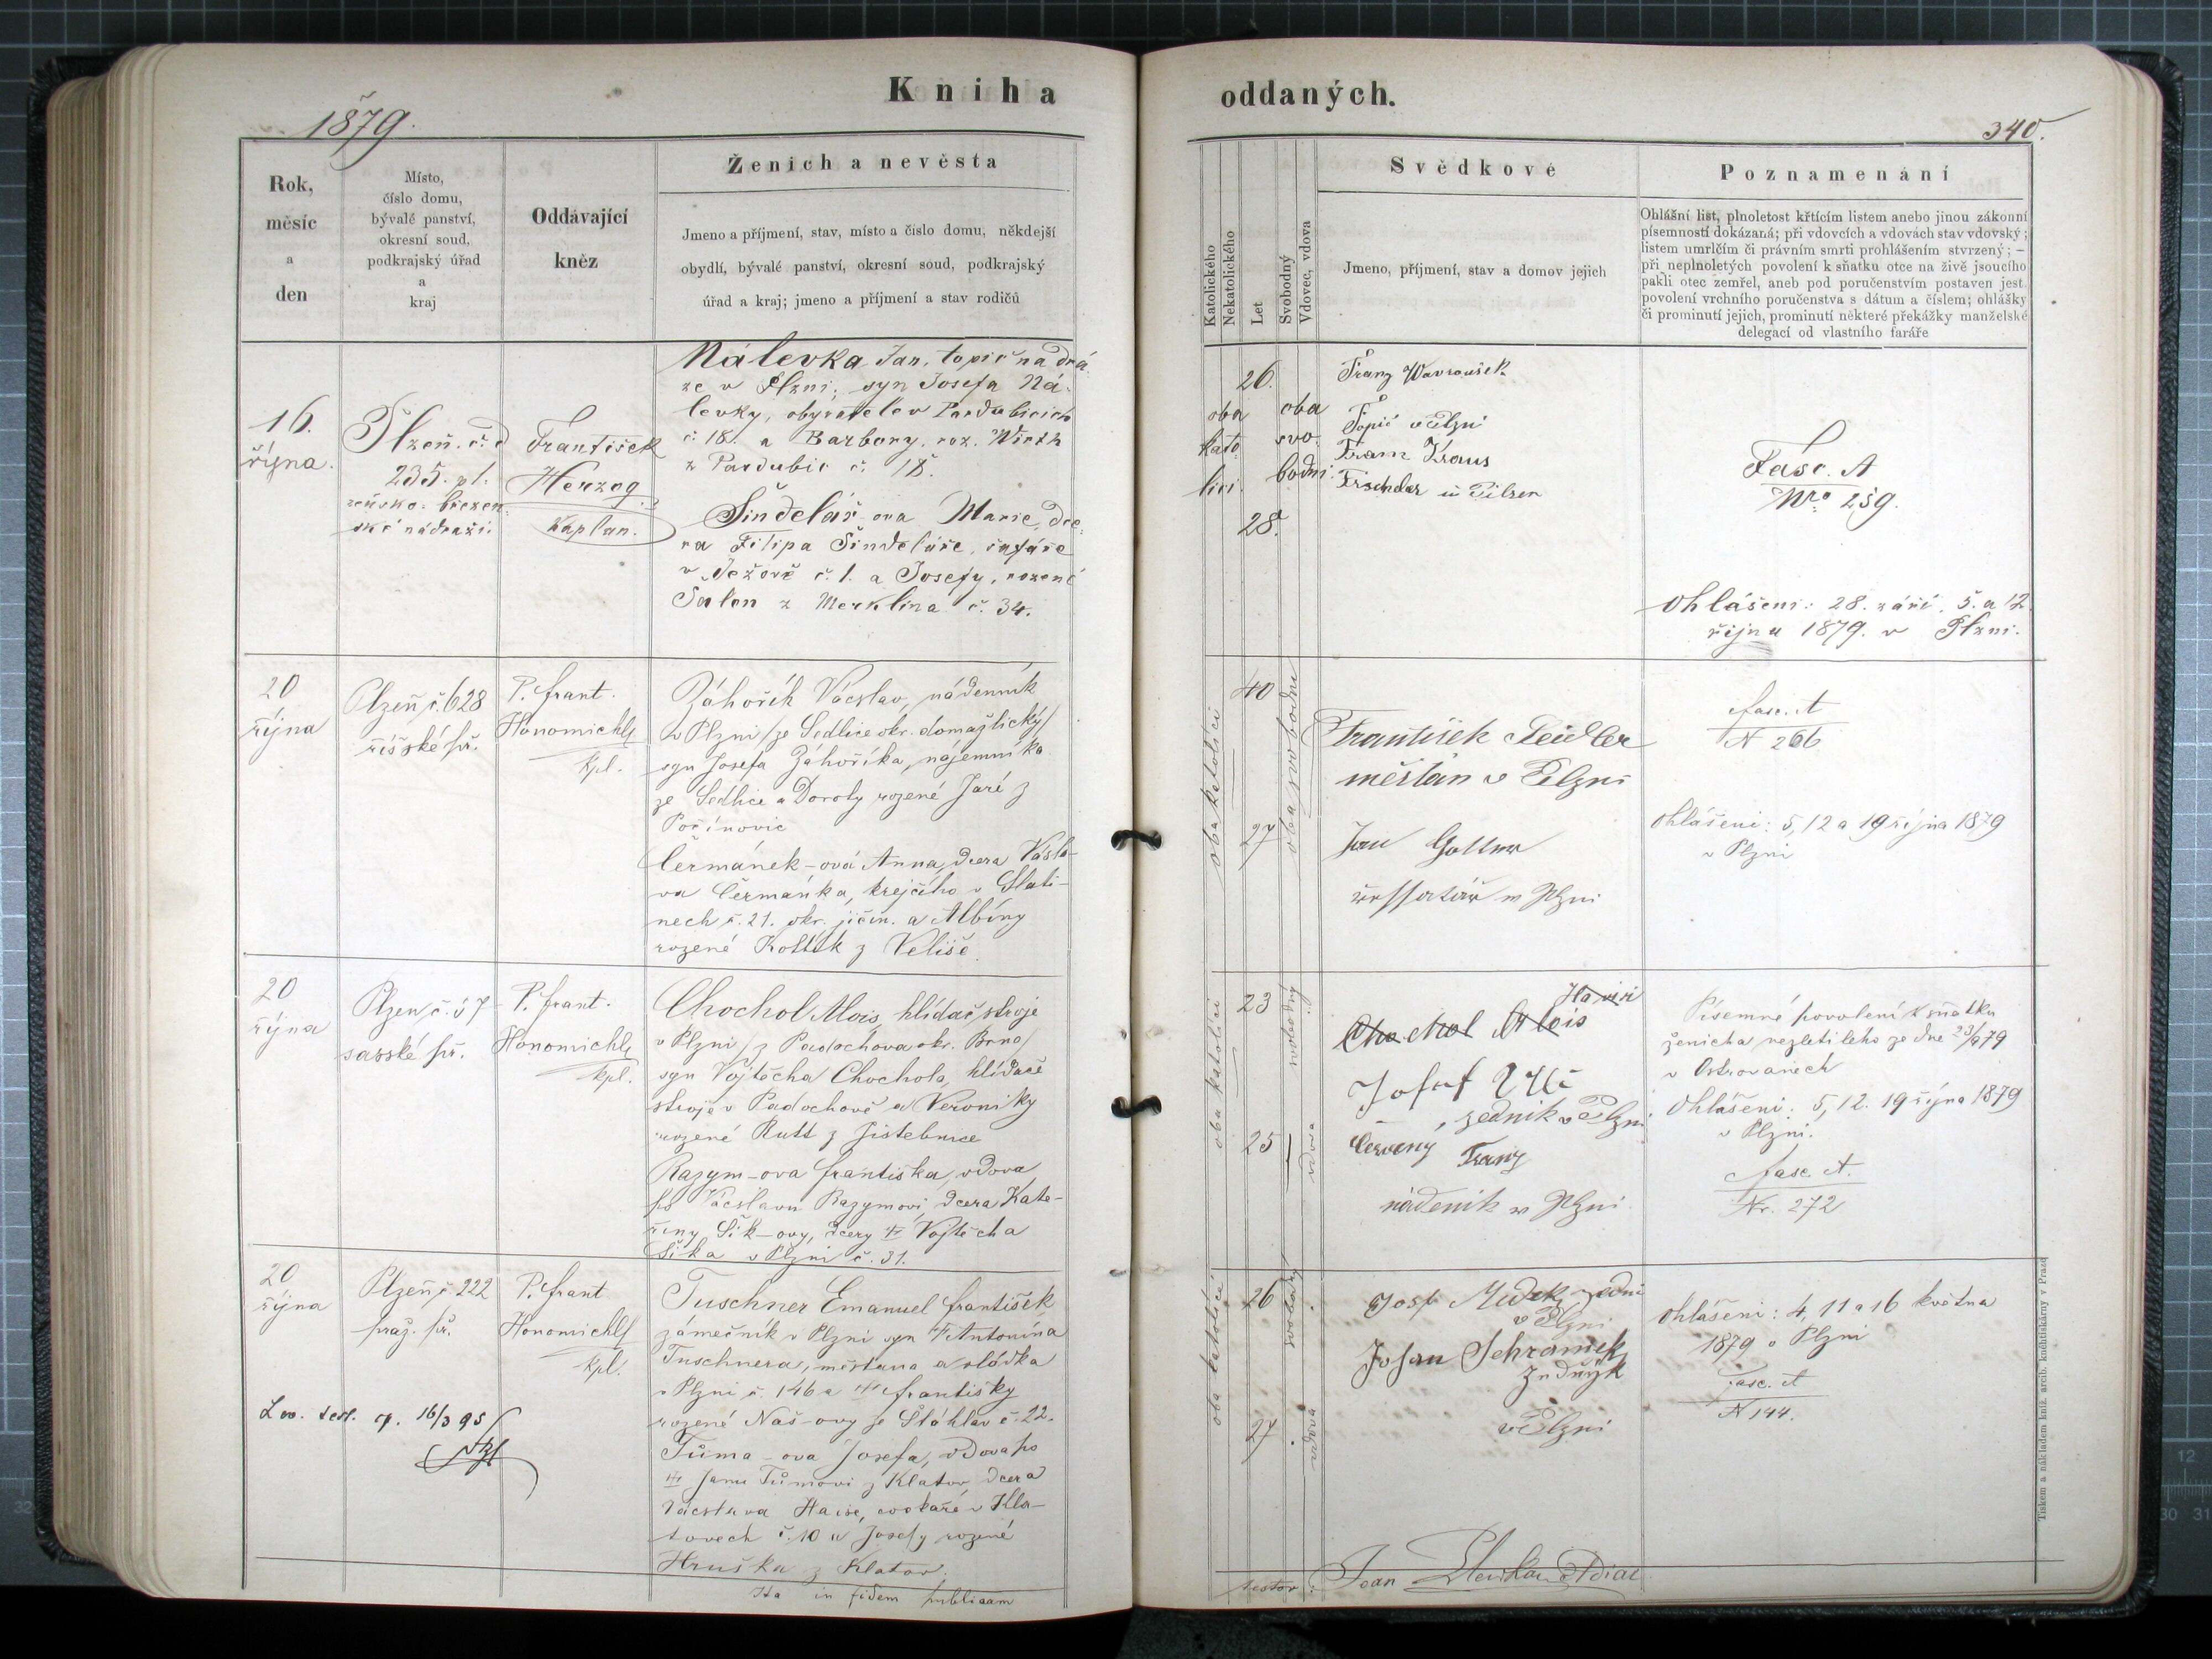 1879.
Kniha
Rok,
měsíc
a
den
Místo,
číslo domu,
bývalé panství,
okresní soud,
podkrajský úřad
a
kraj
Oddávající
kněz
Ženich a nevěsta
Jmeno a příjmení, stav, místo a číslo domu, někdejší
obydlí, bývalé panství, okresní soud, podkrajský
úřad a kraj; jmeno a příjmení a stav rodičů
16.
října.
Plzeň. č. d
235. pl.
zeňsko-březen
ské nádraží.
František
Herzog
kaplan.
Nálevka Jan, topič na drá
ze v Plzni, syn Josefa Ná-
levky, obyvatele v Pardubicích
č. 18. a Barbory, roz. Wirth
z Pardubic č. 18.
Šindelář-ova Marie, dce-
ra Filipa Šindeláře, šafáře
v Ježově č. 1. a Josefy, rozené
Salon z Merklína č. 34.
20
října
Plzeň č. 628
říšské př.
P. Frant.
Honomichl
kpl.
Záhořík Vácslav, nádenník
v Plzni /ze Sedlice okr. domažlický/
syn Josefa Záhoříka, nájemníka
ze Sedlice a Doroty rozené Jaré z
Pořínovic
Čermánek-ová Anna, dcera Vácsla-
va Čermánka, krejčího v Slati-
nech č. 21. okr. jičín. a Albíny
rozené Košťák z Veliše.
20
října
Plzeň č. 57
saské př.
P. Frant.
Honomichl
kpl.
Chochol Alois, hlídač stroje
v Plzni /z Padochova okr. Brno/
syn Vojtěcha Chochola, hlídače
stroje v Padochově a Veroniky
rozené Rutt z Jistebnice
Razym-ova Františka, vdova
po Vácslavu Razymovi, dcera Kate-
řiny Šik-ovy, dcery Vojtěcha
Šika v Plzni č. 31.
20
října
Plzeň č. 222
praž. př.
P. Frant
Honomichl
kpl.
Tuschner Emanuel František
zámečník v Plzni syn Antonína
Tuschnera, měšťana a sládka
v Plzni č. 146 a Františky
rozené Naš-ovy ze Šťáhlav č. 22.
Tůma-ova Josefa, vdova po
Janu Tůmovi z Klatov, dcera
Vácslava Haise, cvokaře v Kla-
tovech č. 10 a Josefy rozené
Hruška z Klatov.
16/3 95
Ita in fidem publicam
oddaných.
340.
Katolického
Nekatolického
Let
Svobodný
Vdovec, vdova
Svědkové
Jmeno, příjmení, stav a domov jejich
Poznamenání
Ohlášní list, plnoletost křtícím listem anebo jinou zákonní
písemností dokázaná; při vdovcích a vdovách stav vdovský;
listem umrlčím či právním smrti prohlášením stvrzený; –
při neplnoletých povolení k sňatku otce na živě jsoucího
pakli otec zemřel, aneb pod poručenstvím postaven jest,
povolení vrchního poručenstva s dátum a číslem; ohlášky
či prominutí jejich, prominutí některé překážky manželské
delegací od vlastního faráře
26.
oba
kato-
líci.
oba
svo-
bodni.
28.
Franz Wavroušek
Topič v Plzni
Franz Kraus
Tischler in Pilsen
Fasc. A
Nro 259.
Ohlášeni: 28. září, 5. a 12
října 1879. v Plzni.
oba katolíci
40
27
oba svobodni
František Seidler
měšťan v Plzni
Jan Gollner
v Plzni
fasc. A
N 266
Ohlášeni: 5, 12 a 19 října 1879
v Plzni
oba katolíci
23
25
svobodný
vdova
Chochol Alois
Josef
zedník v Plzni
Červeny Franz
nádeník v Plzni
Písemné povolení k sňatku
ženicha nezletilého ze dne 23/9 79
v Ostrovanech
Ohlášeni: 5, 12. 19 října 1879
v Plzni.
fasc. A.
Nr. 272
oba katolíci
26
27
svobodný
vdova
Josef
v Plzni
Johan Schrámek
v Plzni
Ohlášeni: 4, 11 a 16 května
1879 v Plzni
Fasc. A
N 144.
Tiskem a nákladem kníž. arcib. knihtiskárny v Praze